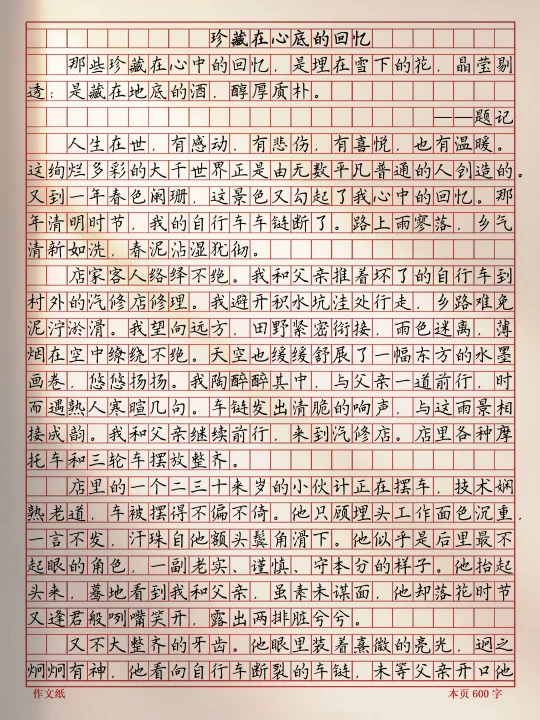 珍藏在心底的回忆
那些珍藏在心中的回忆，是埋在雪下的花，晶莹剔
透；是藏在地底的酒，醇厚质朴。
——题记
人生在世，有感动，有悲伤，有喜悦，也有温暖。
这绚烂多彩的大千世界正是由无数平凡普通的人创造的。
又到一年春色阑珊，这景色又勾起了我心中的回忆。那
年清明时节，我的自行车车链断了。路上雨寥落，乡气
清新如洗，春泥沾湿犹彻。
店家客人络绎不绝。我和父亲推着坏了的自行车到
村外的汽修店修理。我避开积水坑洼处行走，乡路难免
泥泞淤滑。我望向远方，田野紧密衔接，雨色迷离，薄
烟在空中缭绕不绝。天空也缓缓舒展了一幅东方的水墨
画卷，悠悠扬扬。我陶醉醉其中，与父亲一道前行，时
而遇熟人寒暄几句。车链发出清脆的响声，与这雨景相
接成韵。我和父亲继续前行，来到汽修店。店里各种摩
托车和三轮车摆放整齐。
店里的一个二三十来岁的小伙计正在摆车，技术娴
熟老道，车被摆得不偏不倚。他只顾埋头工作面色沉重，
一言不发，汗珠自他额头鬓角滑下。他似乎是后里最不
起眼的角色，一副老实、谨慎、守本分的样子。他抬起
头来，蓦地看到我和父亲，虽素未谋面，他却落花时节
又逢君般咧嘴笑开，露出两排脏兮兮。
又不大整齐的牙齿。他眼里装着熹微的亮光，迥之
炯炯有神，他看向自行车断裂的车链，未等父亲开口他
作文纸
本页 600 字